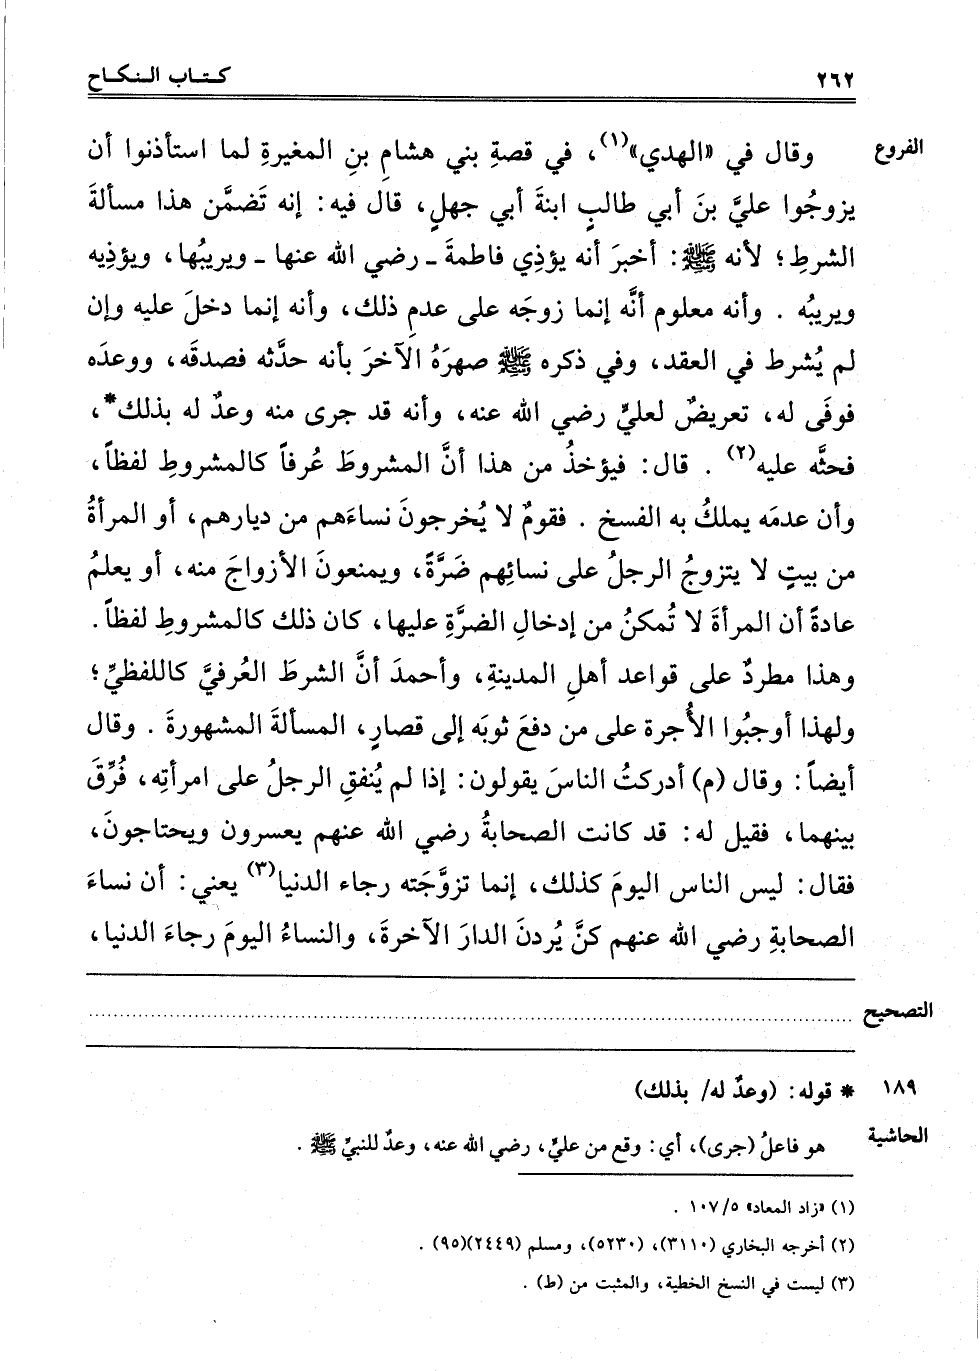 ٢٦٢ كتاب النكاح
الفروع وقال في «الهدي»(١)، في قصةِ بني هشامِ بنِ المغيرةِ لما استأذنوا أن
يزوجُوا عليَّ بنَ أبي طالبٍ ابنةَ أبي جهلٍ، قال فيه: إنه تَضمَّن هذا مسألةَ
الشرطِ؛ لأنه ﷺ: أخبرَ أنه يؤذِي فاطمةَ ـ رضي الله عنها ـ ويريبُها، ويؤذِيه
ويريبُه . وأنه معلوم أنَّه إنما زوجَه على عدمِ ذلك، وأنه إنما دخلَ عليه وإن
لم يُشرط في العقد، وفي ذكره ﷺ صهرَهُ الآخرَ بأنه حدَّثه فصدقَه، ووعدَه
فوفَى له، تعريضٌ لعليٍّ رضي الله عنه، وأنه قد جرى منه وعدٌ له بذلك*،
فحثَّه عليه(٢) . قال: فيؤخذُ من هذا أنَّ المشروطَ عُرفاً كالمشروطِ لفظاً،
وأن عدمَه يملكُ به الفسخ . فقومٌ لا يُخرجونَ نساءَهم من ديارهم، أو المرأةُ
من بيتٍ لا يتزوجُ الرجلُ على نسائِهم ضَرَّةً، ويمنعونَ الأزواجَ منه، أو يعلمُ
عادةً أن المرأةَ لا تُمكنُ من إدخالِ الضرَّةِ عليها، كان ذلك كالمشروطِ لفظاً .
وهذا مطردٌ على قواعد أهلِ المدينةِ، وأحمدَ أنَّ الشرطَ العُرفيَّ كاللفظيِّ؛
ولهذا أوجبُوا الأُجرة على من دفعَ ثوبَه إلى قصارٍ، المسألةَ المشهورةَ . وقال
أيضاً: وقال (م) أدركتُ الناسَ يقولون: إذا لم يُنفقِ الرجلُ على امرأتِه، فُرِّقَ
بينهما، فقيل له: قد كانت الصحابةُ رضي الله عنهم يعسرون ويحتاجونَ،
فقال: ليس الناس اليومَ كذلك، إنما تزوَّجَته رجاء الدنيا(٣) يعني: أن نساءَ
الصحابةِ رضي الله عنهم كنَّ يُردنَ الدارَ الآخرةَ، والنساءُ اليومَ رجاءَ الدنيا،
التصحيح ..........
١٨٩ * قوله: (وعدٌ له/ بذلك)
الحاشية هو فاعلُ (جرى)، أي: وقع من عليٍّ، رضي الله عنه، وعدٌ للنبيِّ ﷺ .
(١) «زاد المعاد» ٥/ ١٠٧ .
(٢) أخرجه البخاري (٣١١٠)، (٥٢٣٠)، ومسلم (٢٤٤٩)(٩٥) .
(٣) ليست في النسخ الخطية، والمثبت من (ط) .